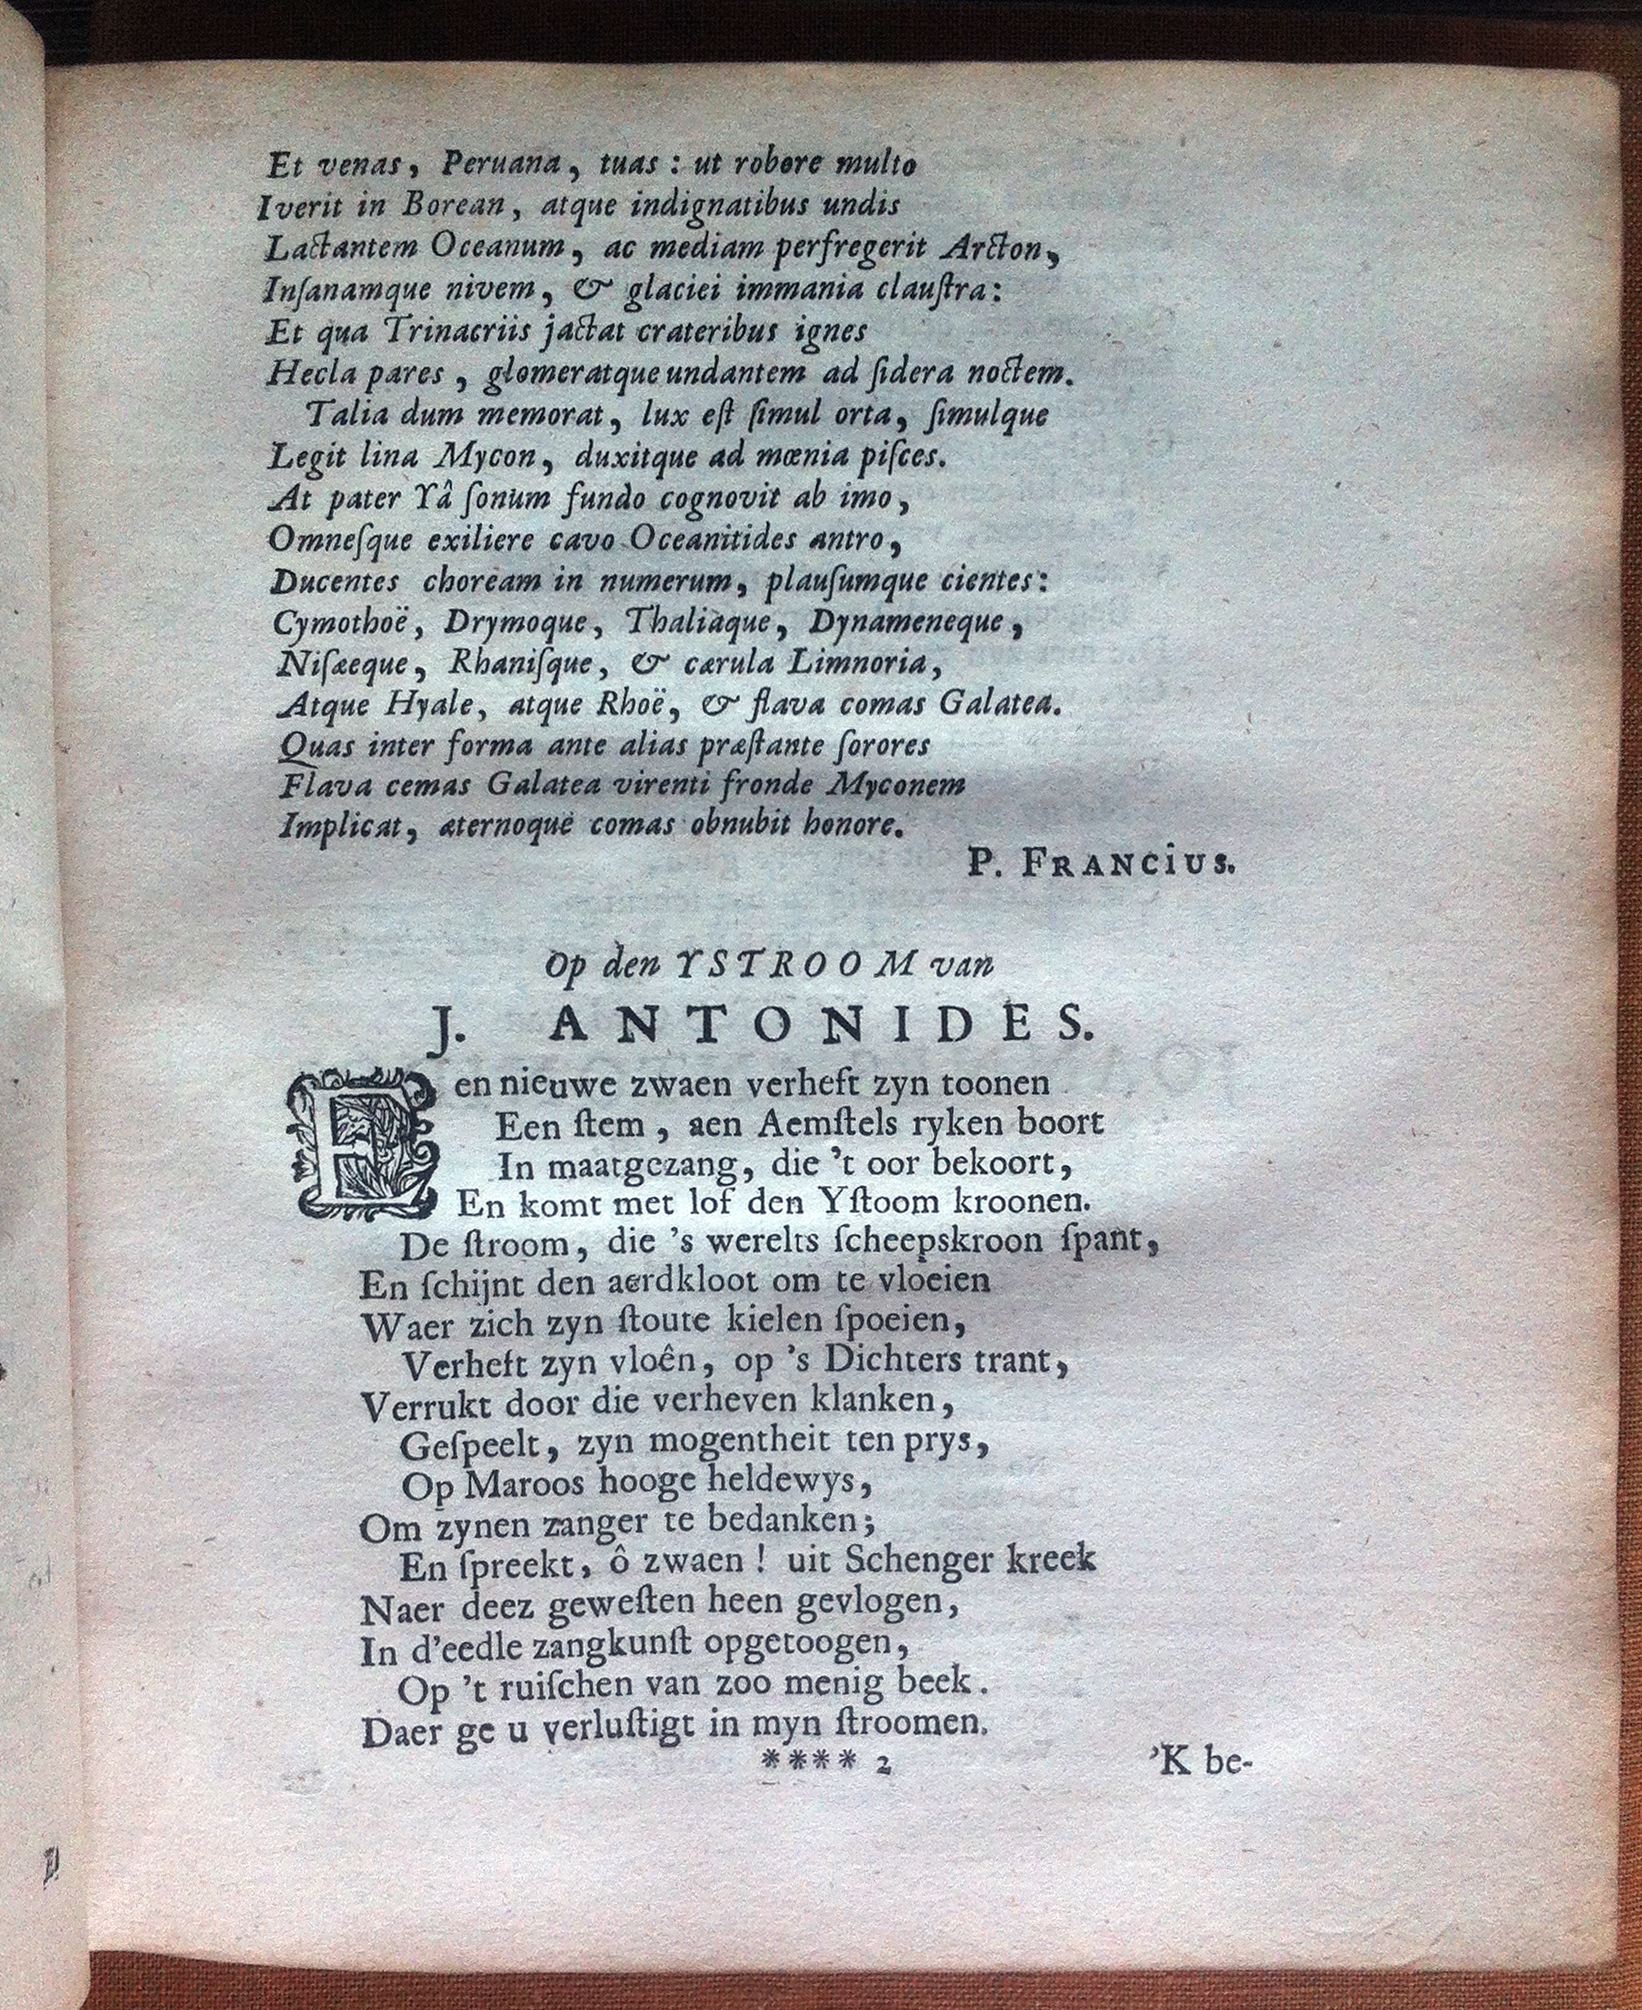 Et venas, Peruana, tuas: ut robore multo
Iverit in Borean, atque indignatibus undis
Lactantem Oceanum, ac mediam perfregerit Arcton,
Inſanamque nivem, & glaciei immania clauſtra:
Et qua Trinacriis jactat crateribus ignes
Hecla pares, glomeratque undantem ad ſidera noctem.
Talia dum memorat, lux eſt ſimul orta, ſimulque
Legit lina Mycon, duxitque ad mœnia piſces.
At pater Yâ ſonum fundo cognovit ab imo,
Omneſque exiliere cavo Oceanitides antro,
Ducentes choream in numerum, plauſumque cientes:
Cymothoë, Drymoque, Thaliaque, Dynameneque,
Niſæeque, Rhaniſque, & cærula Limnoria,
Atque Hyale, atque Rhoë, & flava comas Galatea.
Quas inter forma ante alias præſtante ſorores
Flava cemas Galatea virenti fronde Myconem
Implicat, æternoque comas obnubit honore.
P. FRANCIUS.
Op den YSTROOM van
J. ANTONIDES.
Een nieuwe zwaen verheft zyn toonen
Een ſtem, aen Aemſtels ryken boort
In maatgezang, die 't oor bekoort,
En komt met lof den Yſtoom kroonen.
De ſtroom, die 's werelts ſcheepskroon ſpant,
En ſchijnt den aerdkloot om te vloeien
Waer zich zyn ſtoute kielen ſpoeien,
Verheft zyn vloên, op 's Dichters trant,
Verrukt door die verheven klanken,
Geſpeelt, zyn mogentheit ten prys,
Op Maroos hooge heldewys,
Om zynen zanger te bedanken;
En ſpreekt, ô zwaen! uit Schenger kreek
Naer deez geweſten heen gevlogen,
In d'eedle zangkunſt opgetoogen,
Op 't ruiſchen van zoo menig beek.
Daer ge u verluſtigt in myn ſtroomen.
**** 2 'K be-